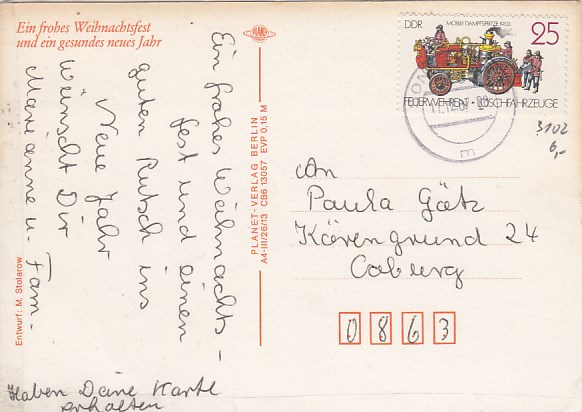 Ein frohes Weihnachtsfest
und ein gesundes neues Jahr
Ein frohes Weihnachts-
fest und einen
guten Rutsch ins
Neue Jahr
wünscht Dir
Marianne u. Fam.
Haben Deine Karte
erhalten
Entwurf: M. Stolarow
PLANET-VERLAG BERLIN
A4-III/26/13 CB6 13057 EVP 0,15 M
PLANET
DDR
MOBILE DAMPFSPRITZE 1903
25
FEUERWEHREN · LÖSCHFAHRZEUGE
m
3102
6,-
An
Paula Götz
Kürengrund 24
Coburg
0863